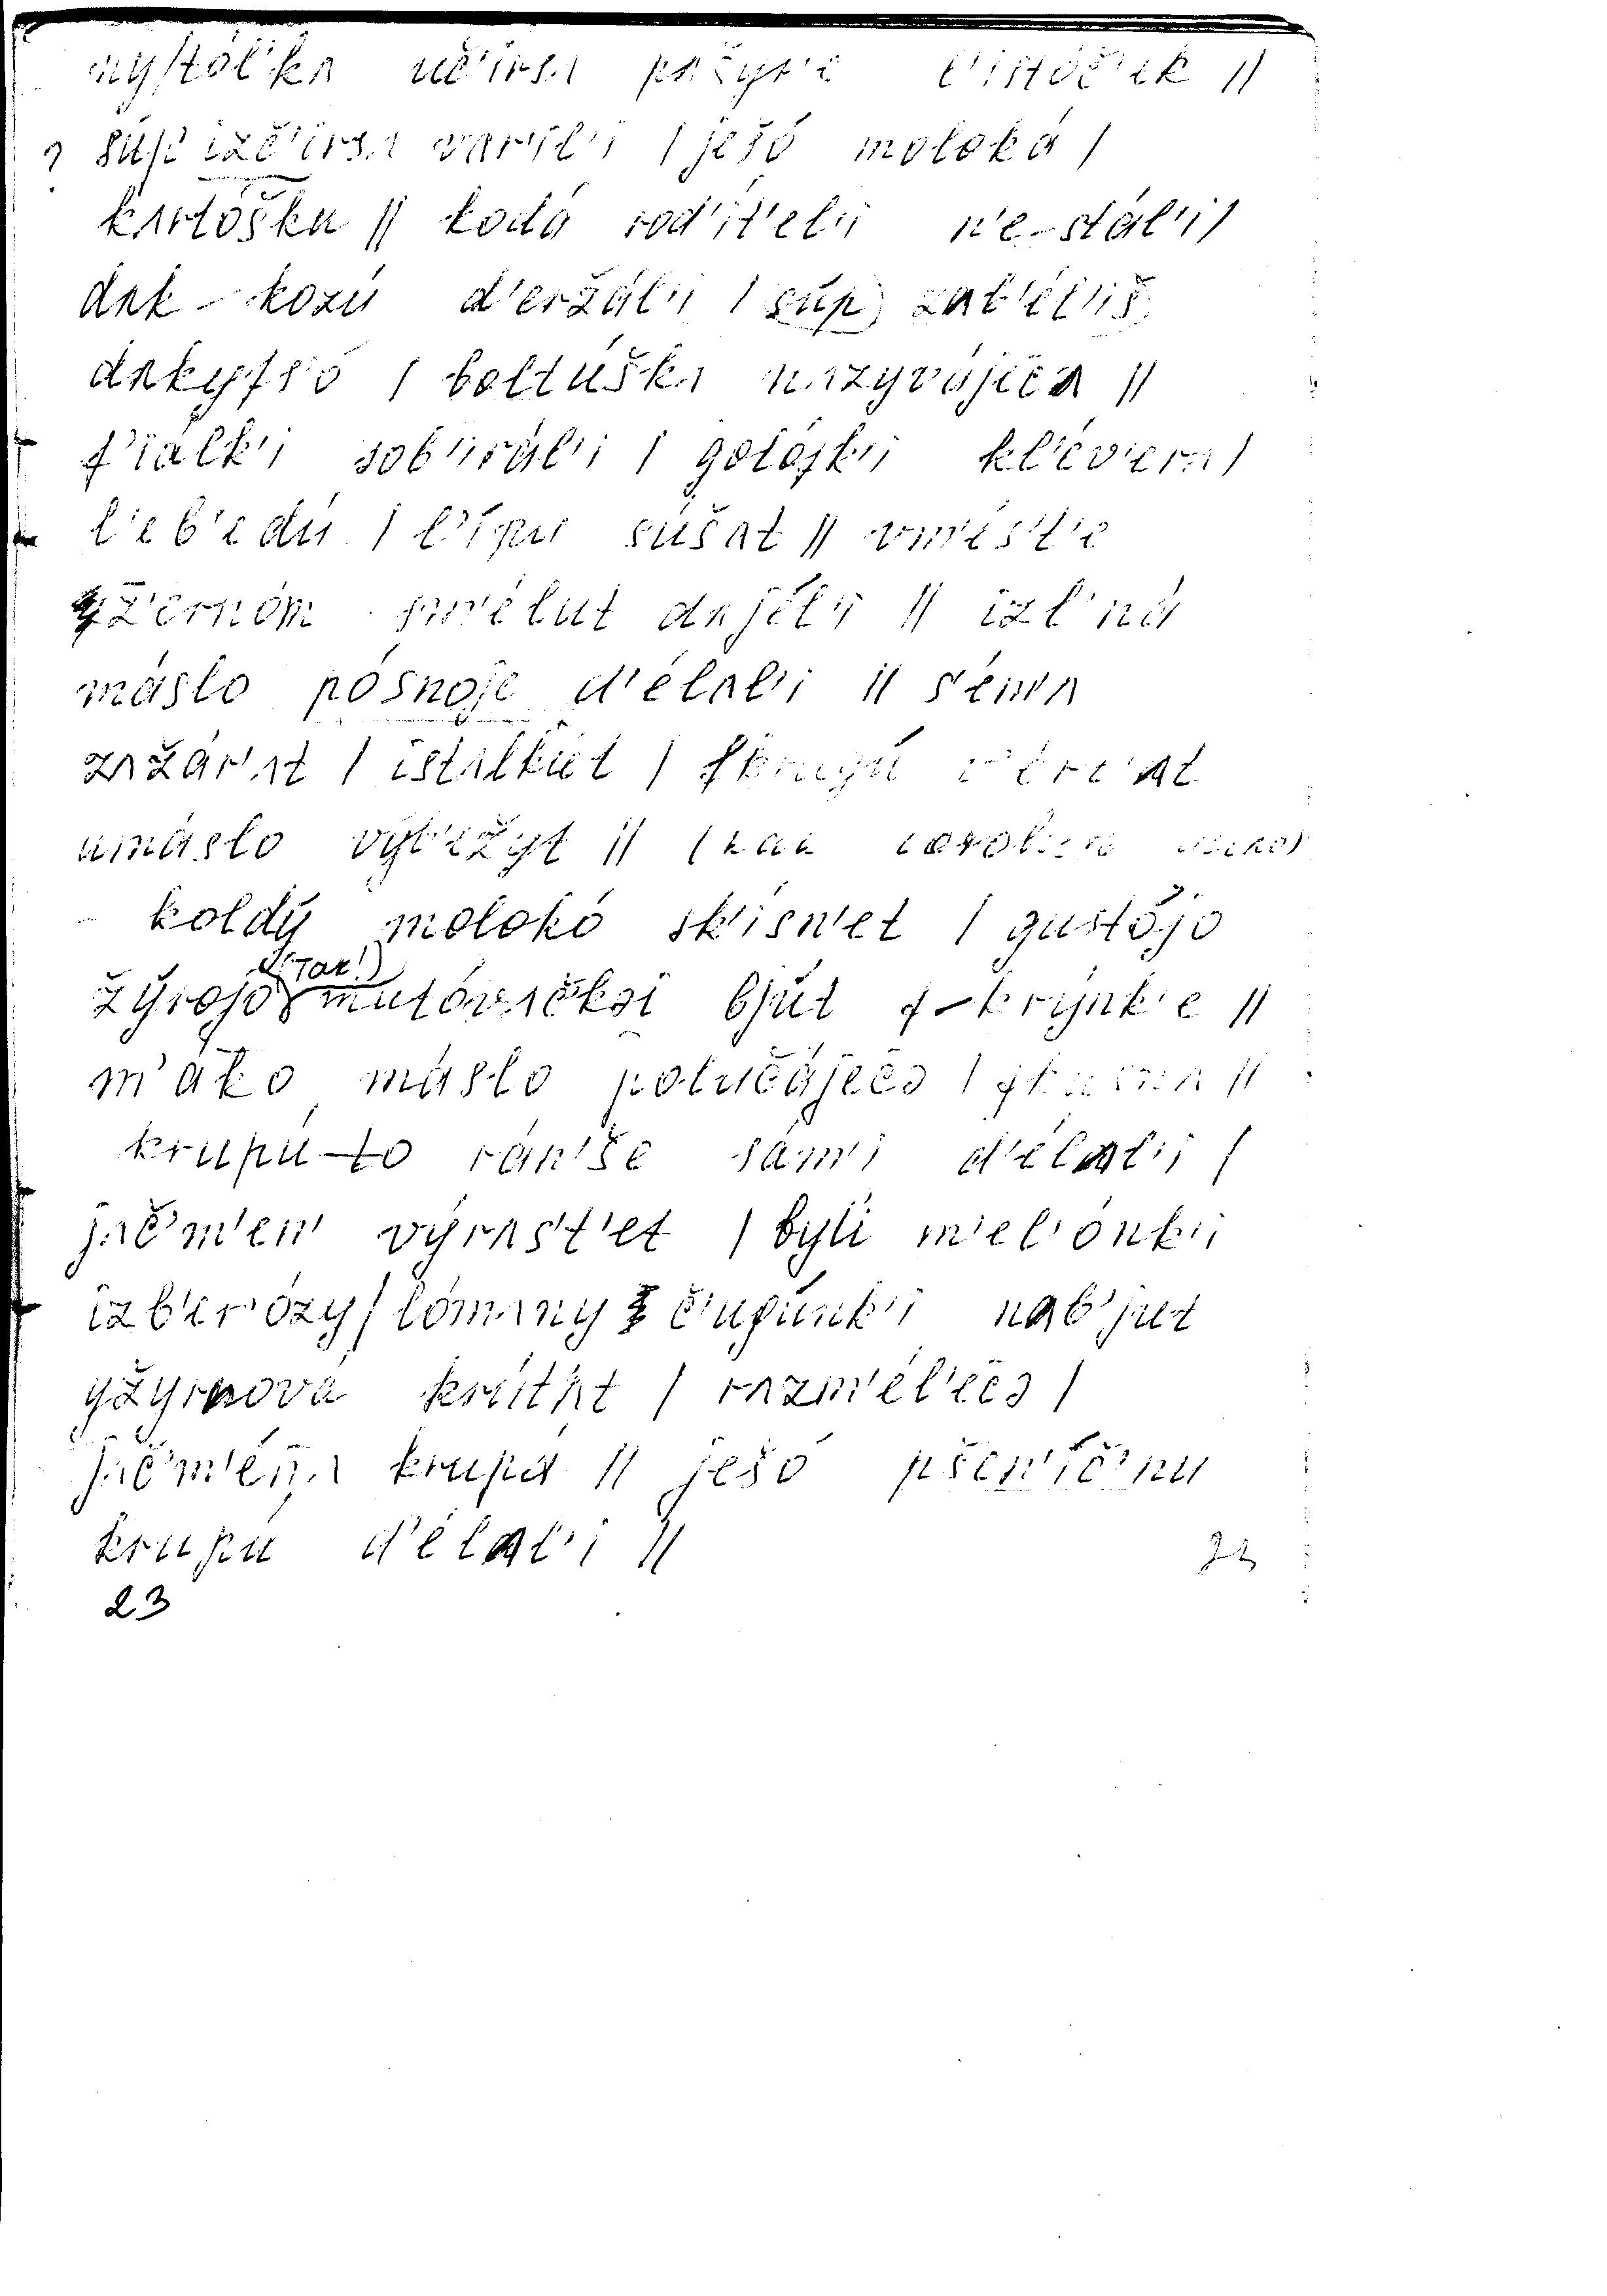 ny/tól'kʌ uč'irsʌ pʌžyr'é l'istóč'ek //
? súp izč'irsʌ var'íl'i / ješó moloká /
kʌrtóšku // kodá rod'ít'el'i n'e-stál'i /
dʌk - kozú d'eržál'i / súp zʌb'él'iš
dʌkyfs'ó / boltúškʌ nʌzyvájiċʌ //
f'iálk'i sob'irál'i / golófk'i kl'év'erʌ /
l'eb'edú / l'ípu súšʌt // vm'és't'e
yžernóm sm'élut dʌ jél'i // izl'ná
máslo pósnoje d'élʌl'i // s'ém'ʌ
zʌžár'ʌt / istʌlkút /
umáslo výb'ižyt //
- koldý molokó sk'ísn'et / gustójo
žýrojo (так!) mutóv'ičkəj bjút f-krýnk'e //
m'áko máslo polučájeċə /
krupú-to rán'še sám'i d'élʌl'i /
jʌč'm'en' výrʌs't'et / bylí m'el'ónk'i
izb'er'ózy / lómʌny č'ugúnk'i nʌb'jut
yžyrnová krút'ʌt / rʌzm'él'eċə /
jʌč'm'én̄ʌ krupá // ješó pšen'íč'nu
krupú d'élʌl'i // 23
23